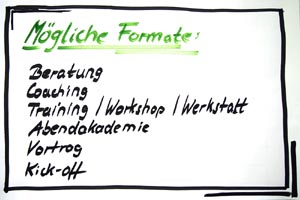 Mögliche Formate:
Beratung
Coaching
Training / Workshop / Werkstatt
Abendakademie
Vortrag
Kick-off